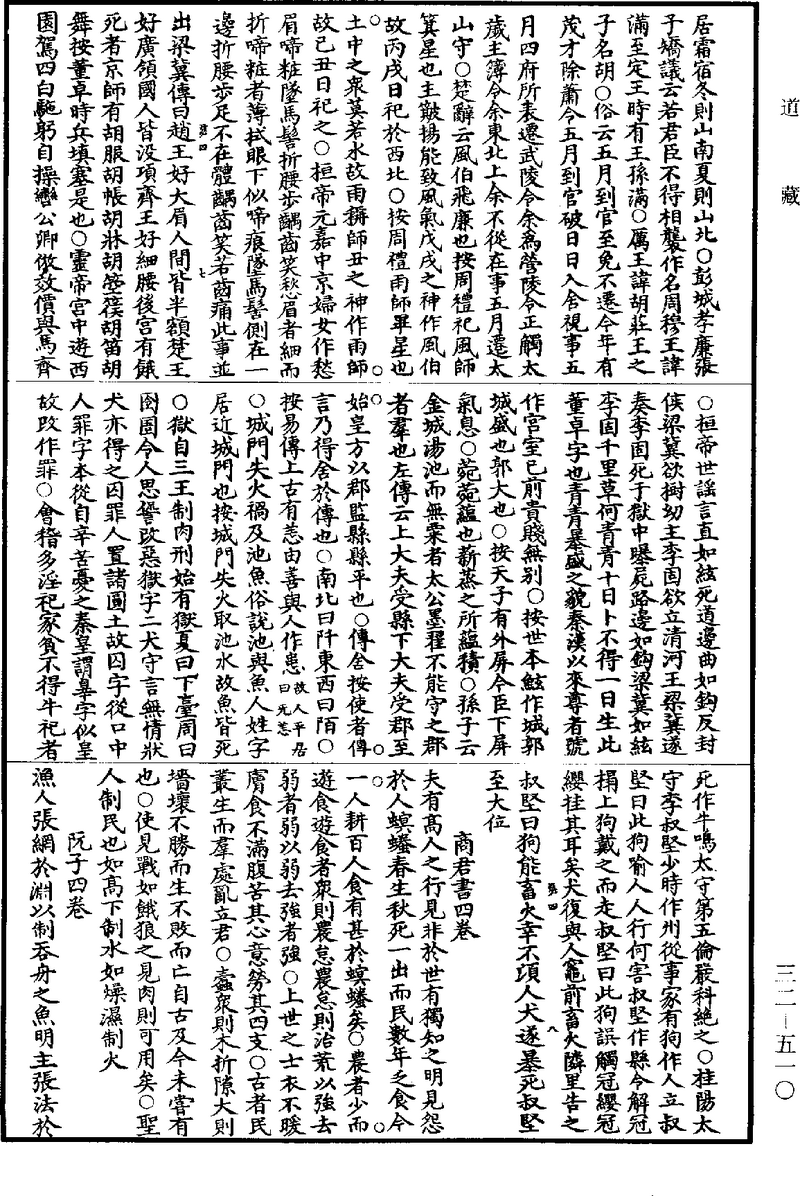 道藏
居霜宿冬則山南夏則山北○彭城孝廉張
子矯議云若君臣不得相襲作名周穆王諱
滿至定王時有王孫滿○厲王諱胡莊王之
子名胡○俗云五月到官至免不遷今年有
茂才除蕭令五月到官破日日入舍視事五
月四府所表遷武陵令余為營陵令正觸太
歲主簿令余東北上余不從在事五月遷太
山守○楚辭云風伯飛廉也按周禮祀風師
箕星也主簸揚能致風氣戊戌之神作風伯
故丙戌日祀於西北○按周禮雨師畢星也
土中之眾莫若水故雨稱師丑之神作雨師
故已丑日祀之○桓帝元嘉中京婦女作愁
眉啼粧墜馬髻折腰步齲齒笑愁眉者細而
折啼粧者薄拭眼下似啼痕墜馬髻側在一
邊折腰步足不在體齲齒笑若齒痛此事並
第四 七
出梁冀傳曰趙王好大眉人間皆半額楚王
好廣領國人皆没項齊王好細腰後宮有餓
死者京師有胡服胡帳胡牀胡箜篌胡笛胡
舞按董卓時兵填塞是也○靈帝宮中遊西
園駕四白騟躬自操轡公卿倣效價與馬齊
○桓帝世謡言直如絃死道邊曲如鈎反封
侯梁冀欲樹幼主李固欲立清河王梁冀遂
奏李固死于獄中曝屍路邊如鈎梁冀如絃
李固千里草何青青十日卜不得一日生此
董卓字也青青暴盛之貌秦漢以來尊者號
作宮室已前貴賤無別○按世本鮌作城郭
城盛也郭大也○按天子有外屏令臣下屏
氣息○菀菀蘊也薪蒸之所蘊積○孫子云
金城湯池而無粟者太公墨程不能守之郡
者羣也左傳云上大夫受縣下大夫受郡至
始皇方以郡監縣縣平也○傳舍按使者傳
言乃得舍於傳也○南北曰阡東西曰陌○
按易傳上古有恙由善與人作患故人平居曰无恙
○城門失火禍及池魚俗說池與魚人姓字
居近城門也按城門失火取池水故魚皆死
○獄自三王制肉刑始有獄夏曰下臺周曰
囹圄令人思諐改惡獄字二犬守言無情狀
犬亦得之囚罪人置諸圜土故囚字從口中
人罪字本從自辛苦憂之秦皇謂辠字似皇
故改作罪○會稽多淫祀家貧不得牛祀者
死作牛鳴太守第五倫嚴科絶之○桂陽太
守李叔堅少時作州從事家有狗作人立叔
堅曰此狗喻人人行何害叔堅作縣令解冠
榻上狗戴之而走叔堅曰此狗誤觸冠纓冠
纓挂其耳矣犬復與人竈前畜火隣里告之
叔堅曰狗能畜火幸不須人犬遂暴死叔堅
第四 八
至大位
商君書四卷
夫有高人之行見非於世有獨知之明見怨
於人螟蟠春生秋死一出而民數年乏食今
一人耕百人食有甚於螟蟠矣○農者少而
遊食遊食者衆則農怠農怠則治荒以強去
弱者弱以弱去強者強○上世之士衣不暖
膚食不滿腹苦其心意勞其四支○古者民
叢生而羣處亂立君○蠹衆則木折隙大則
墻壞不勝而生不敗而亡自古及今未甞有
也○使見戰如餓狼之見肉則可用矣○聖
人制民也如高下制水如燥濕制火
阮子四卷
漁人張網於淵以制吞舟之魚明主張法於
三二—五一〇